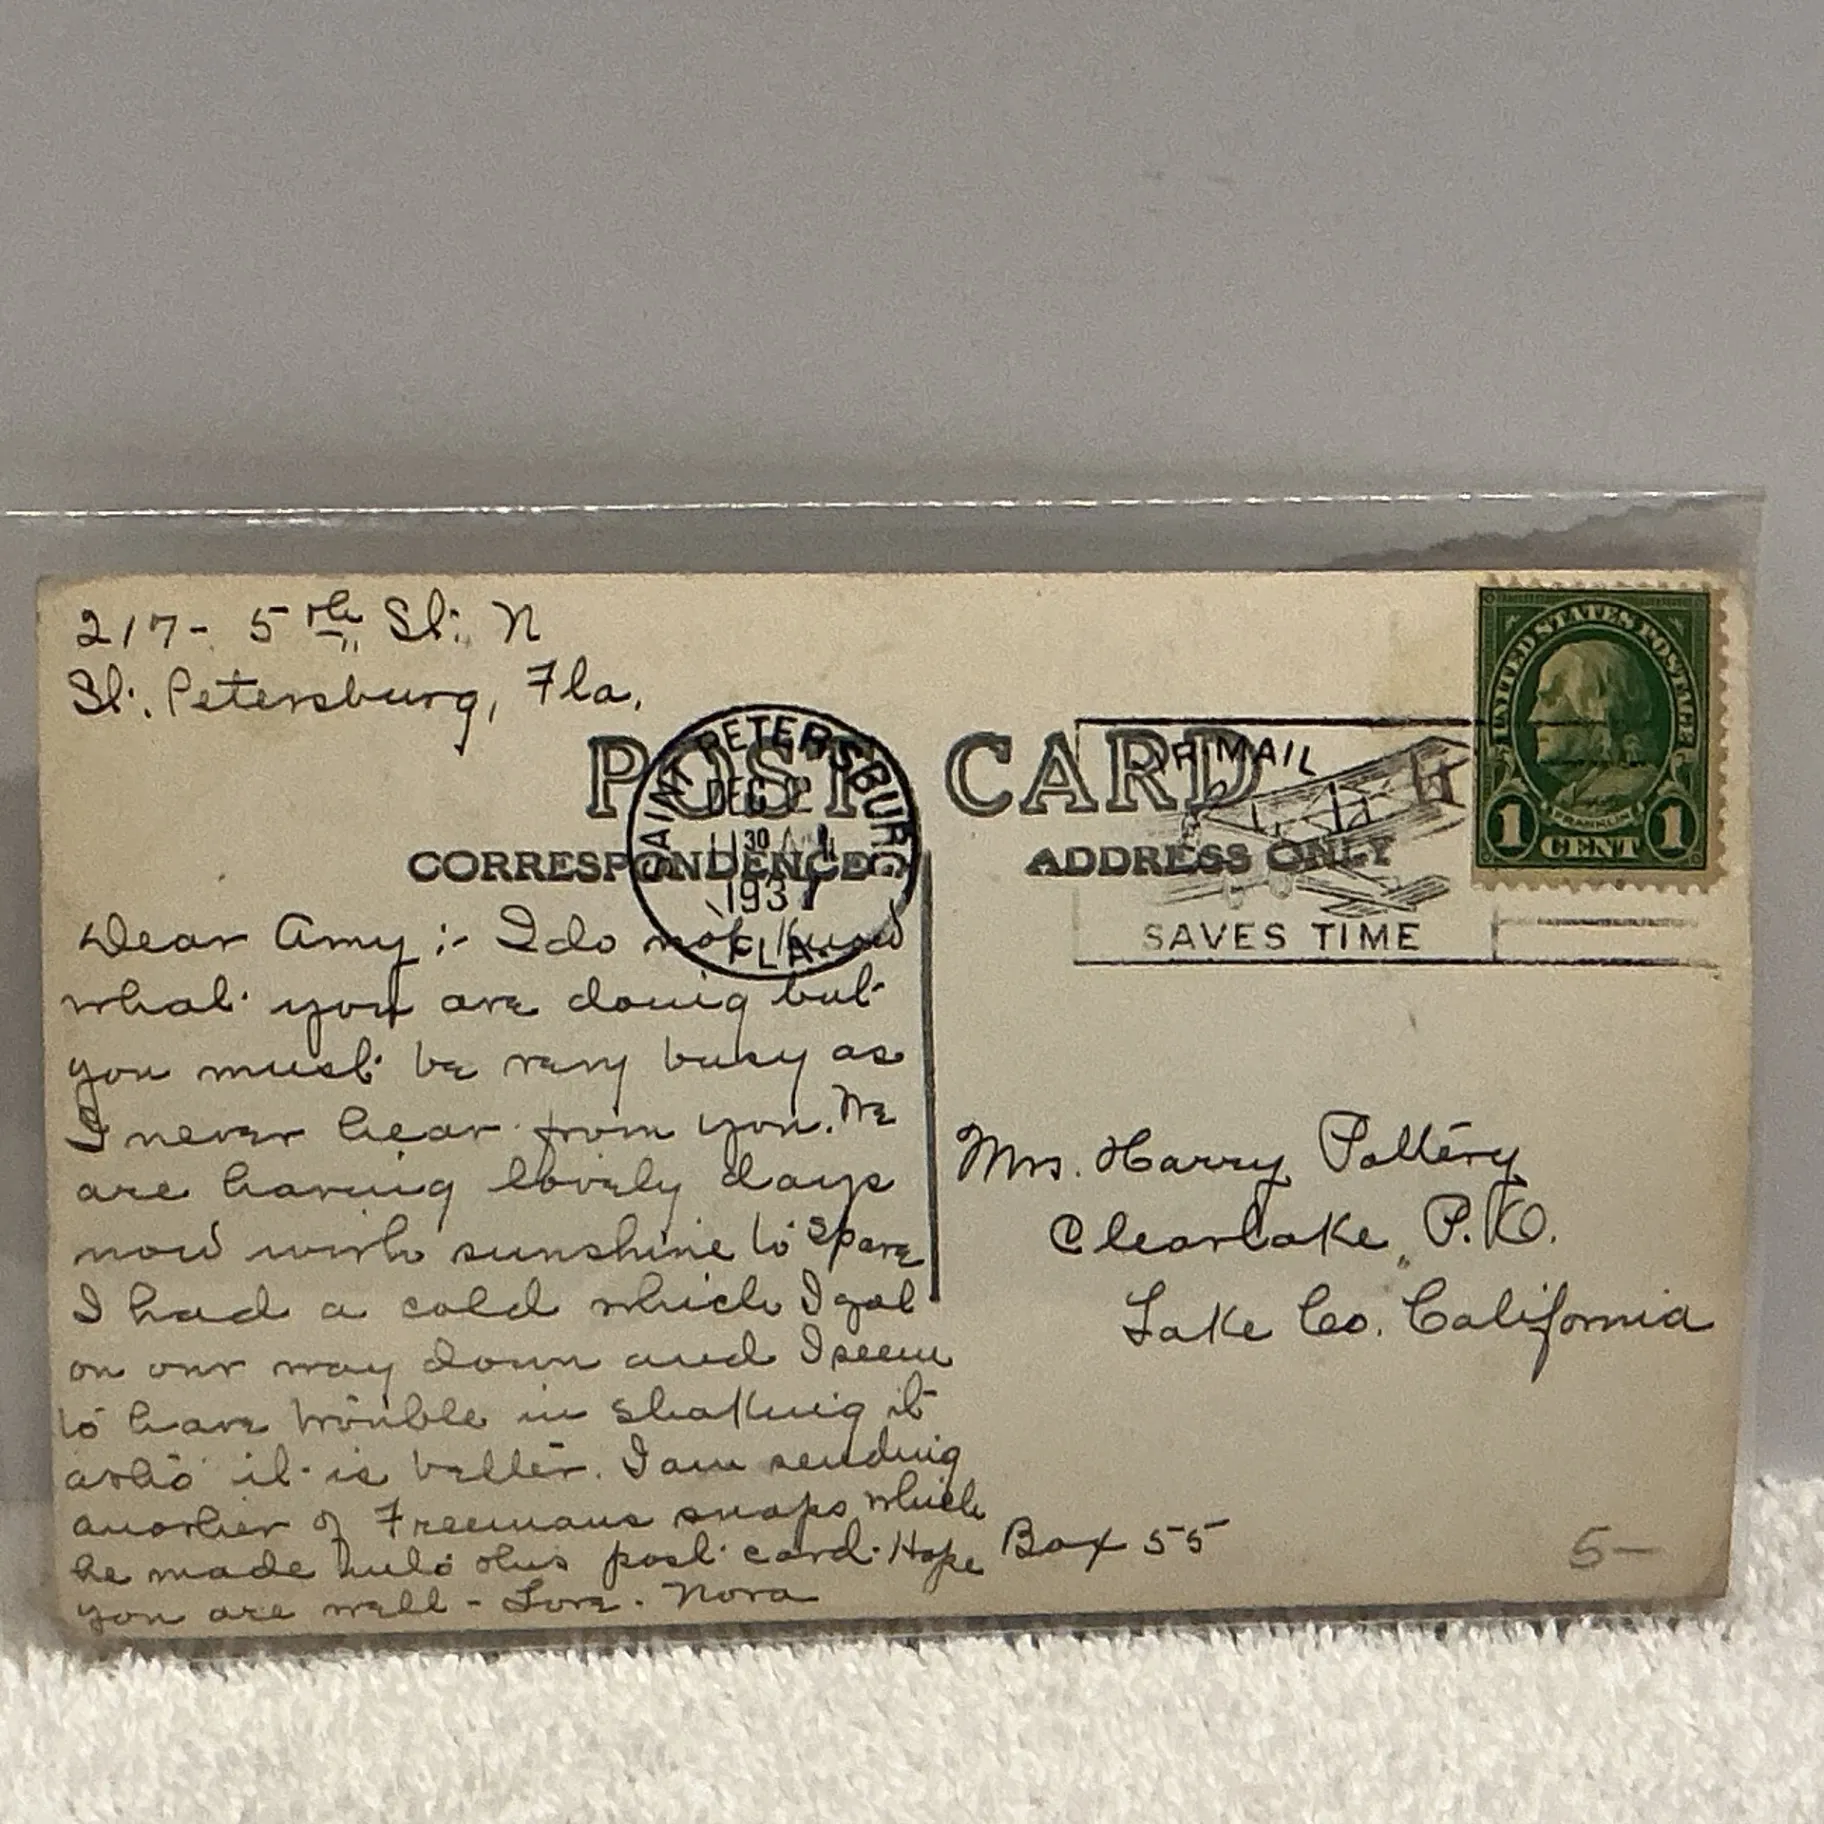 217- 5th St: N
St. Petersburg, Fla.
POST CARD
CORRESPONDENCE
ADDRESS ONLY
SAINT PETERSBURG
DEC
30
193
FLA.
AIR MAIL
SAVES TIME
UNITED STATES POSTAGE
FRANKLIN
1 CENT 1
Dear Amy :- I do not know
what you are doing but
you must be very busy as
I never hear from you. We
are having lovely days
now with sunshine to spare
I had a cold which I got
on our way down and I seem
to have trouble in shaking it
altho it is better. I am sending
another of Freemans snaps which
he made into this post card. Hope
you are well - Love. Nora
Mrs. Harry Pottery
Clearlake P.O.
Lake Co. California
Box 55
5-